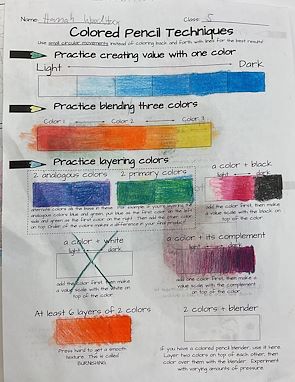 Name: Hannah Class: 5
Colored Pencil Techniques
Use small circular movements instead of coloring back and forth with lines for the best results!
Practice creating value with one color
Light Dark
Practice blending three colors
Color 1 Color 2 Color 3
Practice layering colors
2 analogous colors 2 primary colors a color + black
light dark
alternate colors as the base in these analogous colors blue and green, put blue as the first color on the left side and green as the first color on the right. Then add the other color on top. Order of the colors makes a difference in your final product!
add the color first, then make a value scale with the black on top of the color.
a color + white
a color + its complement
light dark
add the color first, then make a value scale with the white on top of the color.
add one color first, then make a value scale with the complement on top of the color.
At least 6 layers of 2 colors 2 colors + blender
Press hard to get a smooth texture. This is called BURNISHING.
If you have a colored pencil blender, use it here. Layer two colors on top of each other, then color over them with the blender. Experiment with varying amounts of pressure.